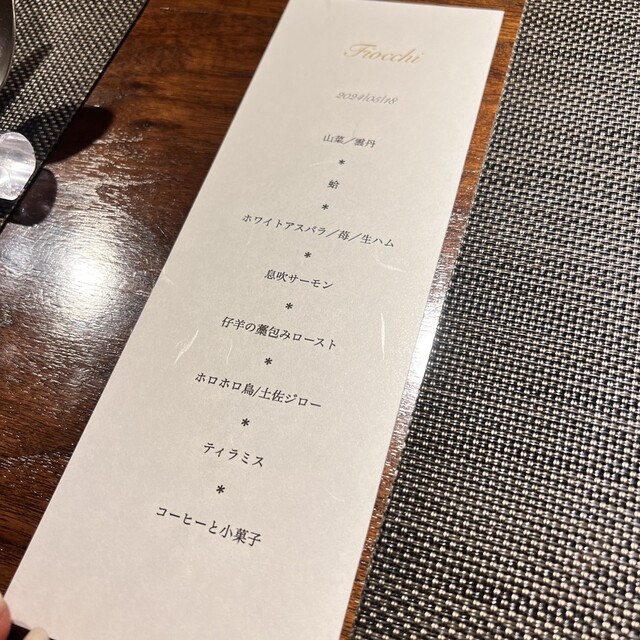 Fiocchi
2024/03/18
山菜／雲丹
*
蛤
*
ホワイトアスパラ／苺／生ハム
*
息吹サーモン
*
仔羊の藁包みロースト
*
ホロホロ鳥/土佐ジロー
*
ティラミス
*
コーヒーと小菓子